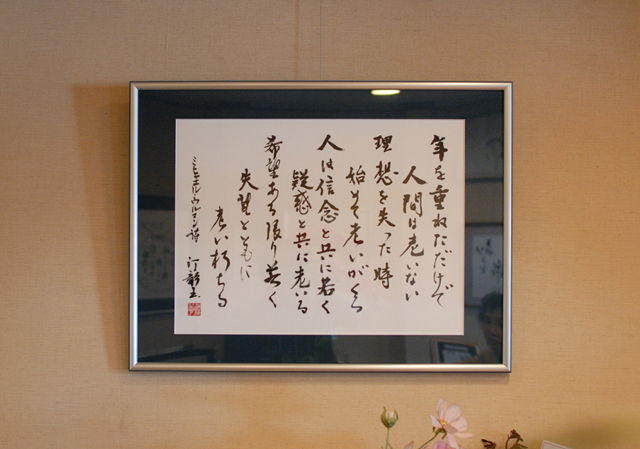 年を重ねただけで
人間は老いない
理想を失った時
始めて老いがくる
人は信念と共に若く
疑惑と共に老いる
希望ある限り若く
失望とともに
老い朽ちる
サミエル・ウルマン詩